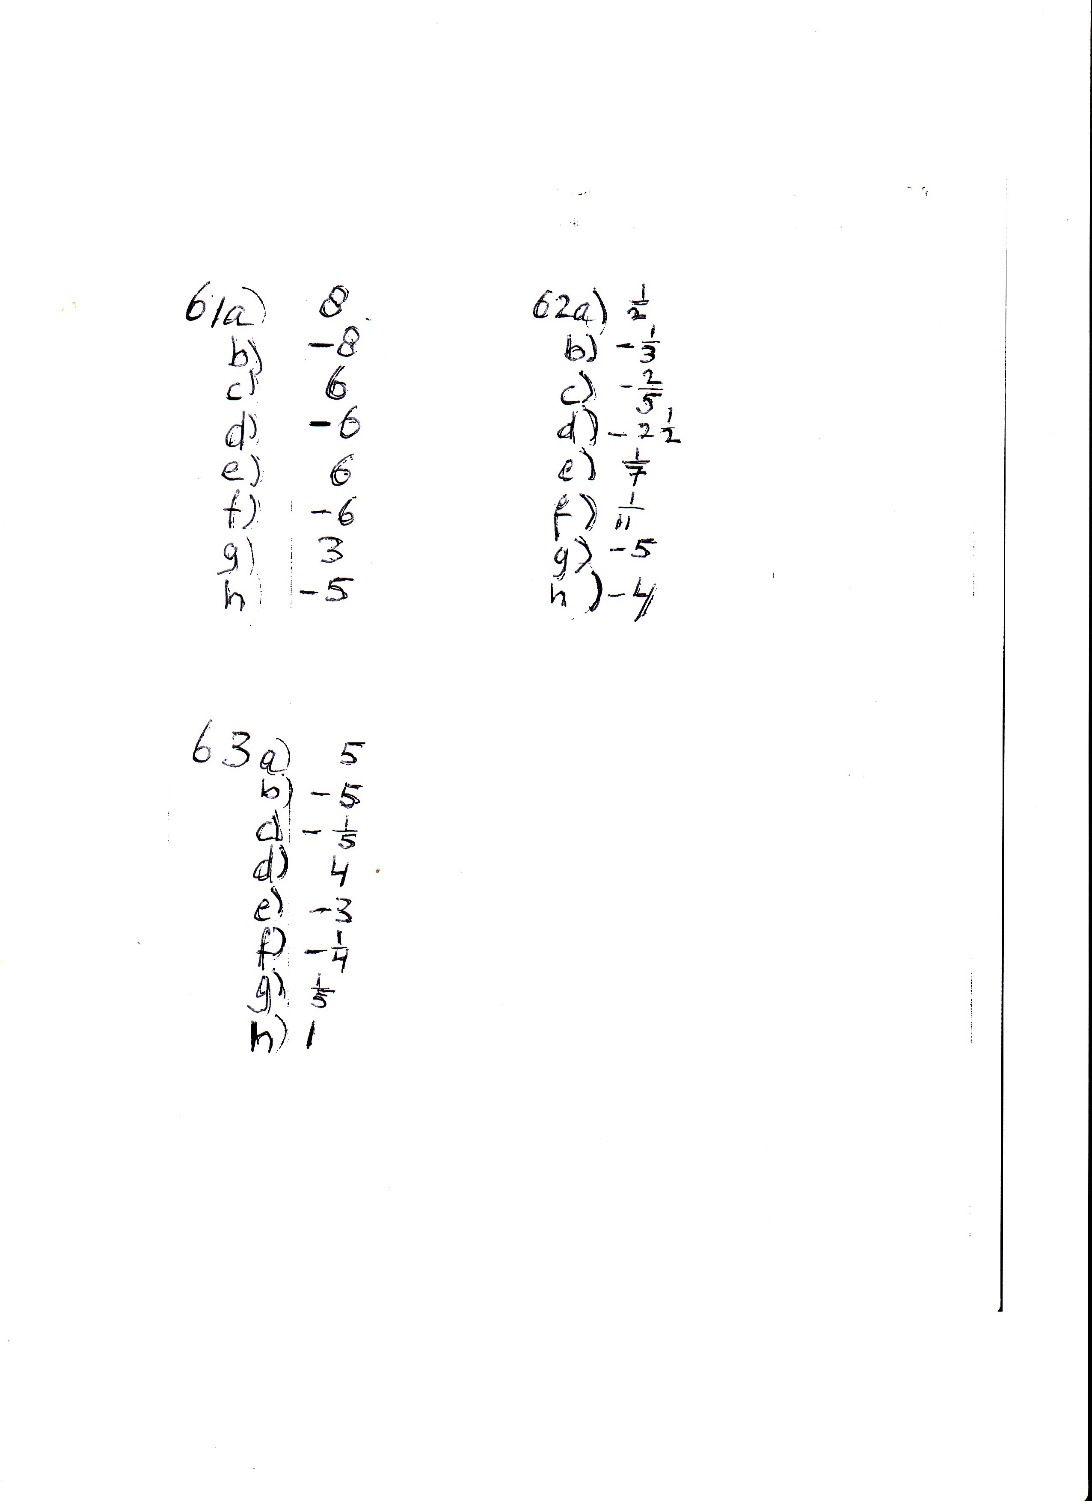 61a) 8
b) -8
c) 6
d) -6
e) 6
f) -6
g) 3
h -5
62a) 1/2
b) -1/3
c) -2/5
d) -2 1/2
e) 1/7
f) 1/11
g) -5
h) -4
63a) 5
b) -5
c) -1/5
d) 4
e) -3
f) -1/4
g) 1/5
h) 1